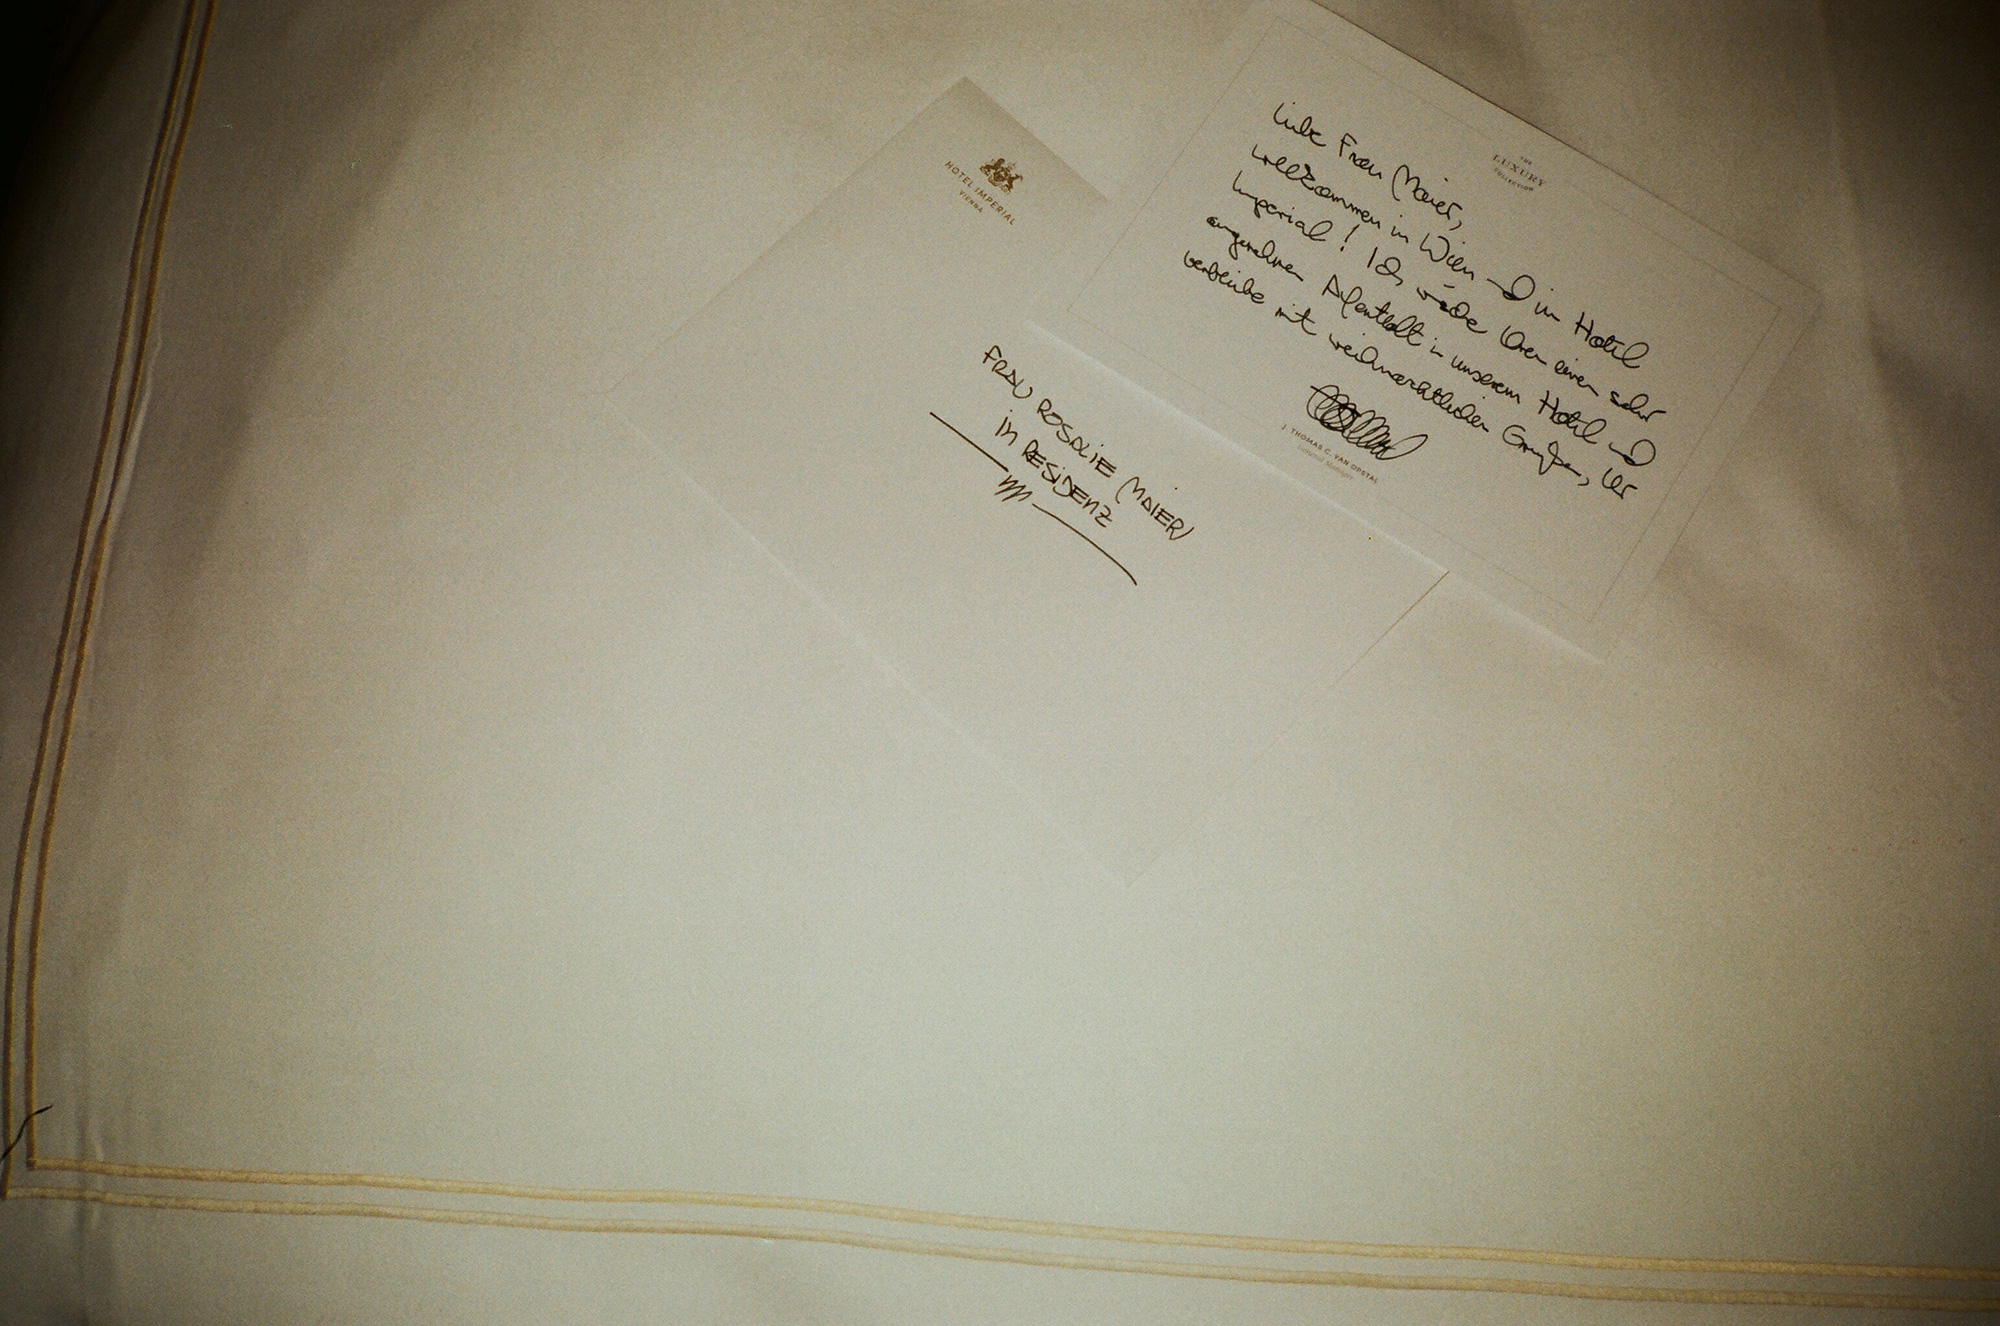 HOTEL IMPERIAL
VIENNA
FRAU ROSALIE MAIER
in RESiDENZ
THE
LUXURY
COLLECTION
Liebe Frau Maier,
willkommen in Wien und im Hotel
Imperial! Ich würde Ihnen einen sehr
angenehmen Aufenthalt in unserem Hotel und
verbleibe mit weihnachtlichen Grüßen, Ihr
J. THOMAS C. VAN OPSTAL
General Manager